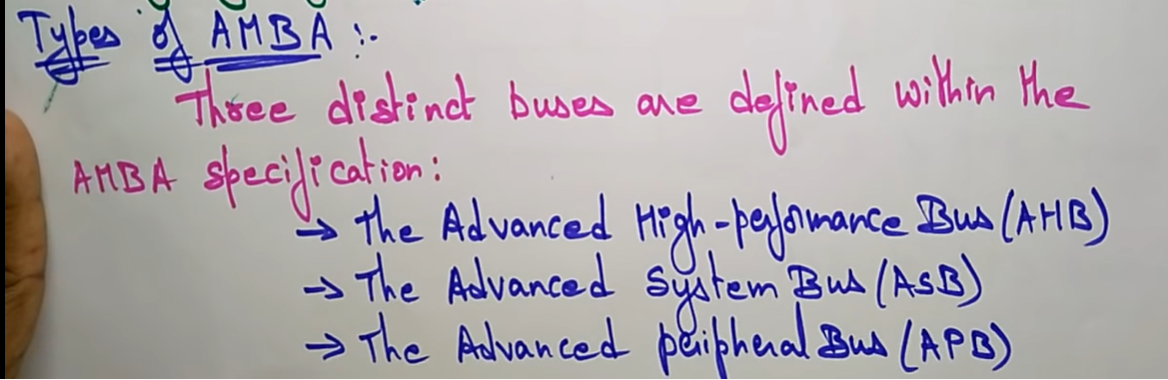 Types of AMBA :-
Three distinct buses are defined within the
AMBA specification:
→ The Advanced High-performance Bus (AHB)
→ The Advanced System Bus (ASB)
→ The Advanced peripheral Bus (APB)